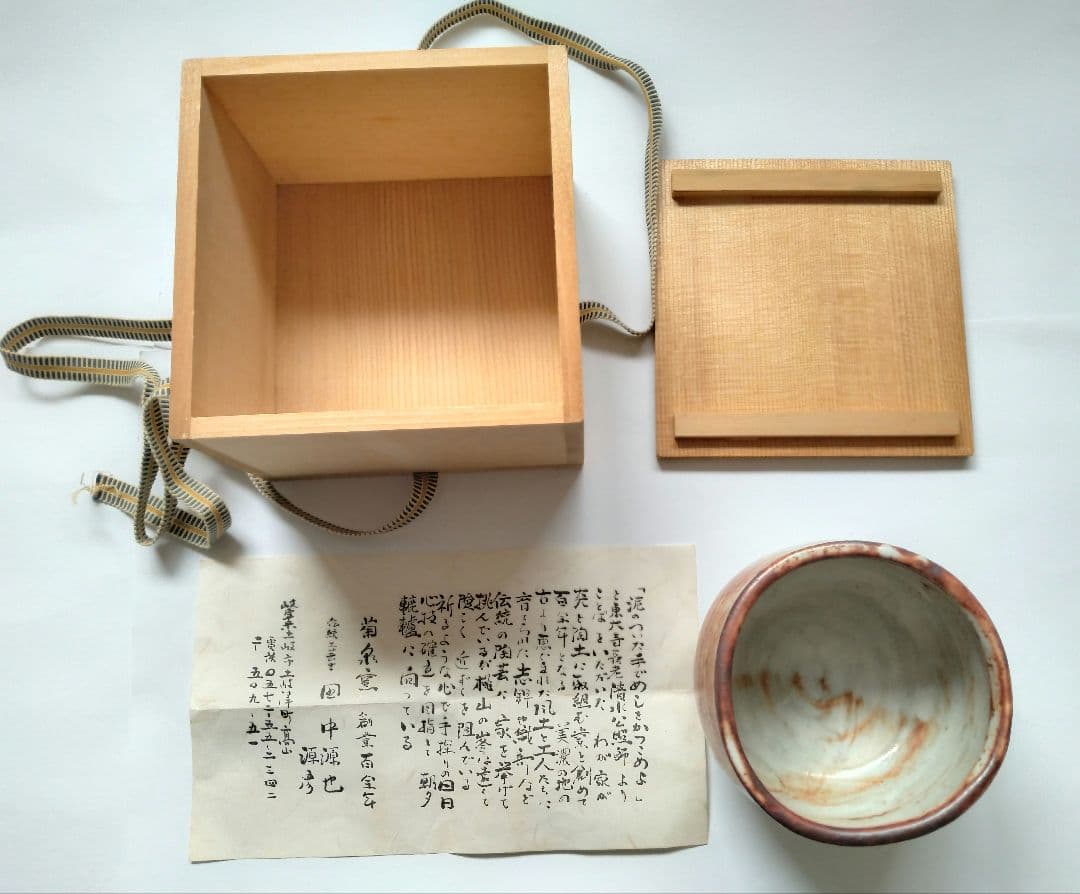 「泥のついた手でめしをかっこめよ」
と東大寺長老清水公照師より
ことばをいただいた わが家が
炎と陶土に取組む業を創めて
百余年となる 美濃の地の
古より恵まれた風土と工人たちに
育まれた志野や織部など
伝統の陶芸に家を挙げて
挑んでいるが桃山の峯は遠く
険しく近ずくを阻んでいる
祈るような心で手探りの毎日
心技の確立を目指して朝夕
轆轤に向っている
菊泉窯 創業百余年
伝統工芸士 田中源也
源彦
岐阜県土岐市土岐津町高山
電話〇五七二・五五・二二四二
〒五〇九‐五一